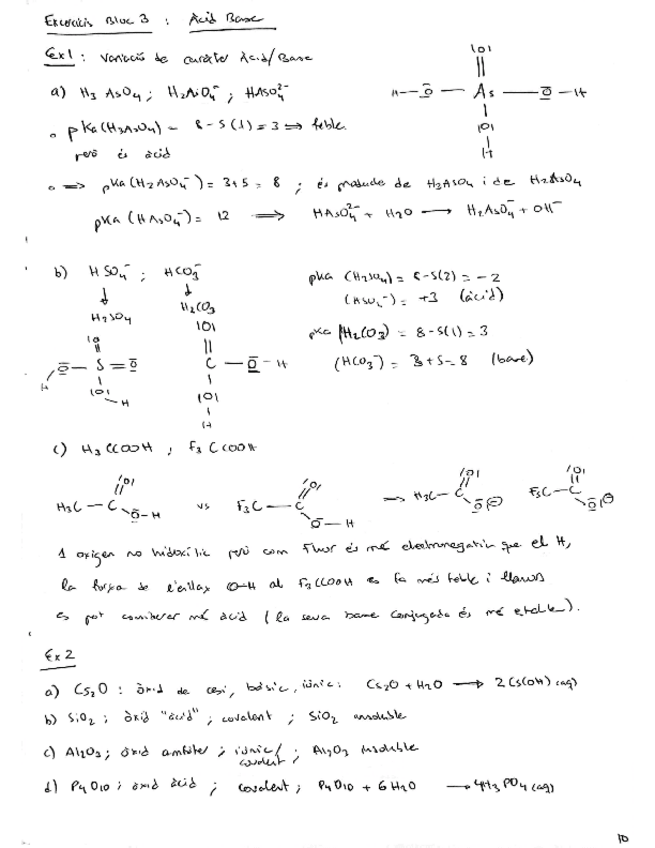 Exercicis Bloc 3 : Àcid Base
Ex1 : Variació de caràcter Àcid/Base
a) H3 AsO4 ; H2AsO4^- ; HAsO4^2-
pKa (H3AsO4) = 8 - 5(1) = 3 ⟹ feble
però és àcid
⟹ pKa (H2AsO4^-) = 3+5 = 8 ; és
pKa (HAsO4^-) = 12 ⟹ HAsO4^2- + H2O ⟶ H2AsO4^- + OH^-
|O|
H - O - As - O - H
|O|
H
b) HSO4^- ; HCO3^-
H2SO4 H2CO3
pka (H2SO4) = 8-5(2) = -2
(HSO4^-) = +3 (àcid)
pKa (H2CO3) = 8-5(1) = 3
(HCO3^-) = 3+5 = 8 (base)
|O| |O|
O - S = O C - O - H
H |O| - H |O|
H
c) H3CCOOH ; F3CCOOH
H3C - C |O| O - H vs F3C - C |O| O - H ⟶ H3C - C |O| |O| ⊖ F3C - C |O| |O| ⊖
1 oxigen no hidoxílic però com Fluor és més electronegatiu que el H,
la força de l'enllaç O-H al F3CCOOH es fa més feble i llavors
es pot considerar més àcid (la seva base conjugada és més estable).
Ex 2
a) Cs2O : òxid de cesi, bàsic, iònic : Cs2O + H2O ⟶ 2Cs(OH) (aq)
b) SiO2 ; òxid "àcid" ; covalent ; SiO2 insoluble
c) Al2O3 ; òxid amfòter ; iònic/ ; Al2O3 insoluble
covalent
d) P4O10 ; òxid àcid ; covalent ; P4O10 + 6H2O ⟶ 4H3PO4 (aq)
10